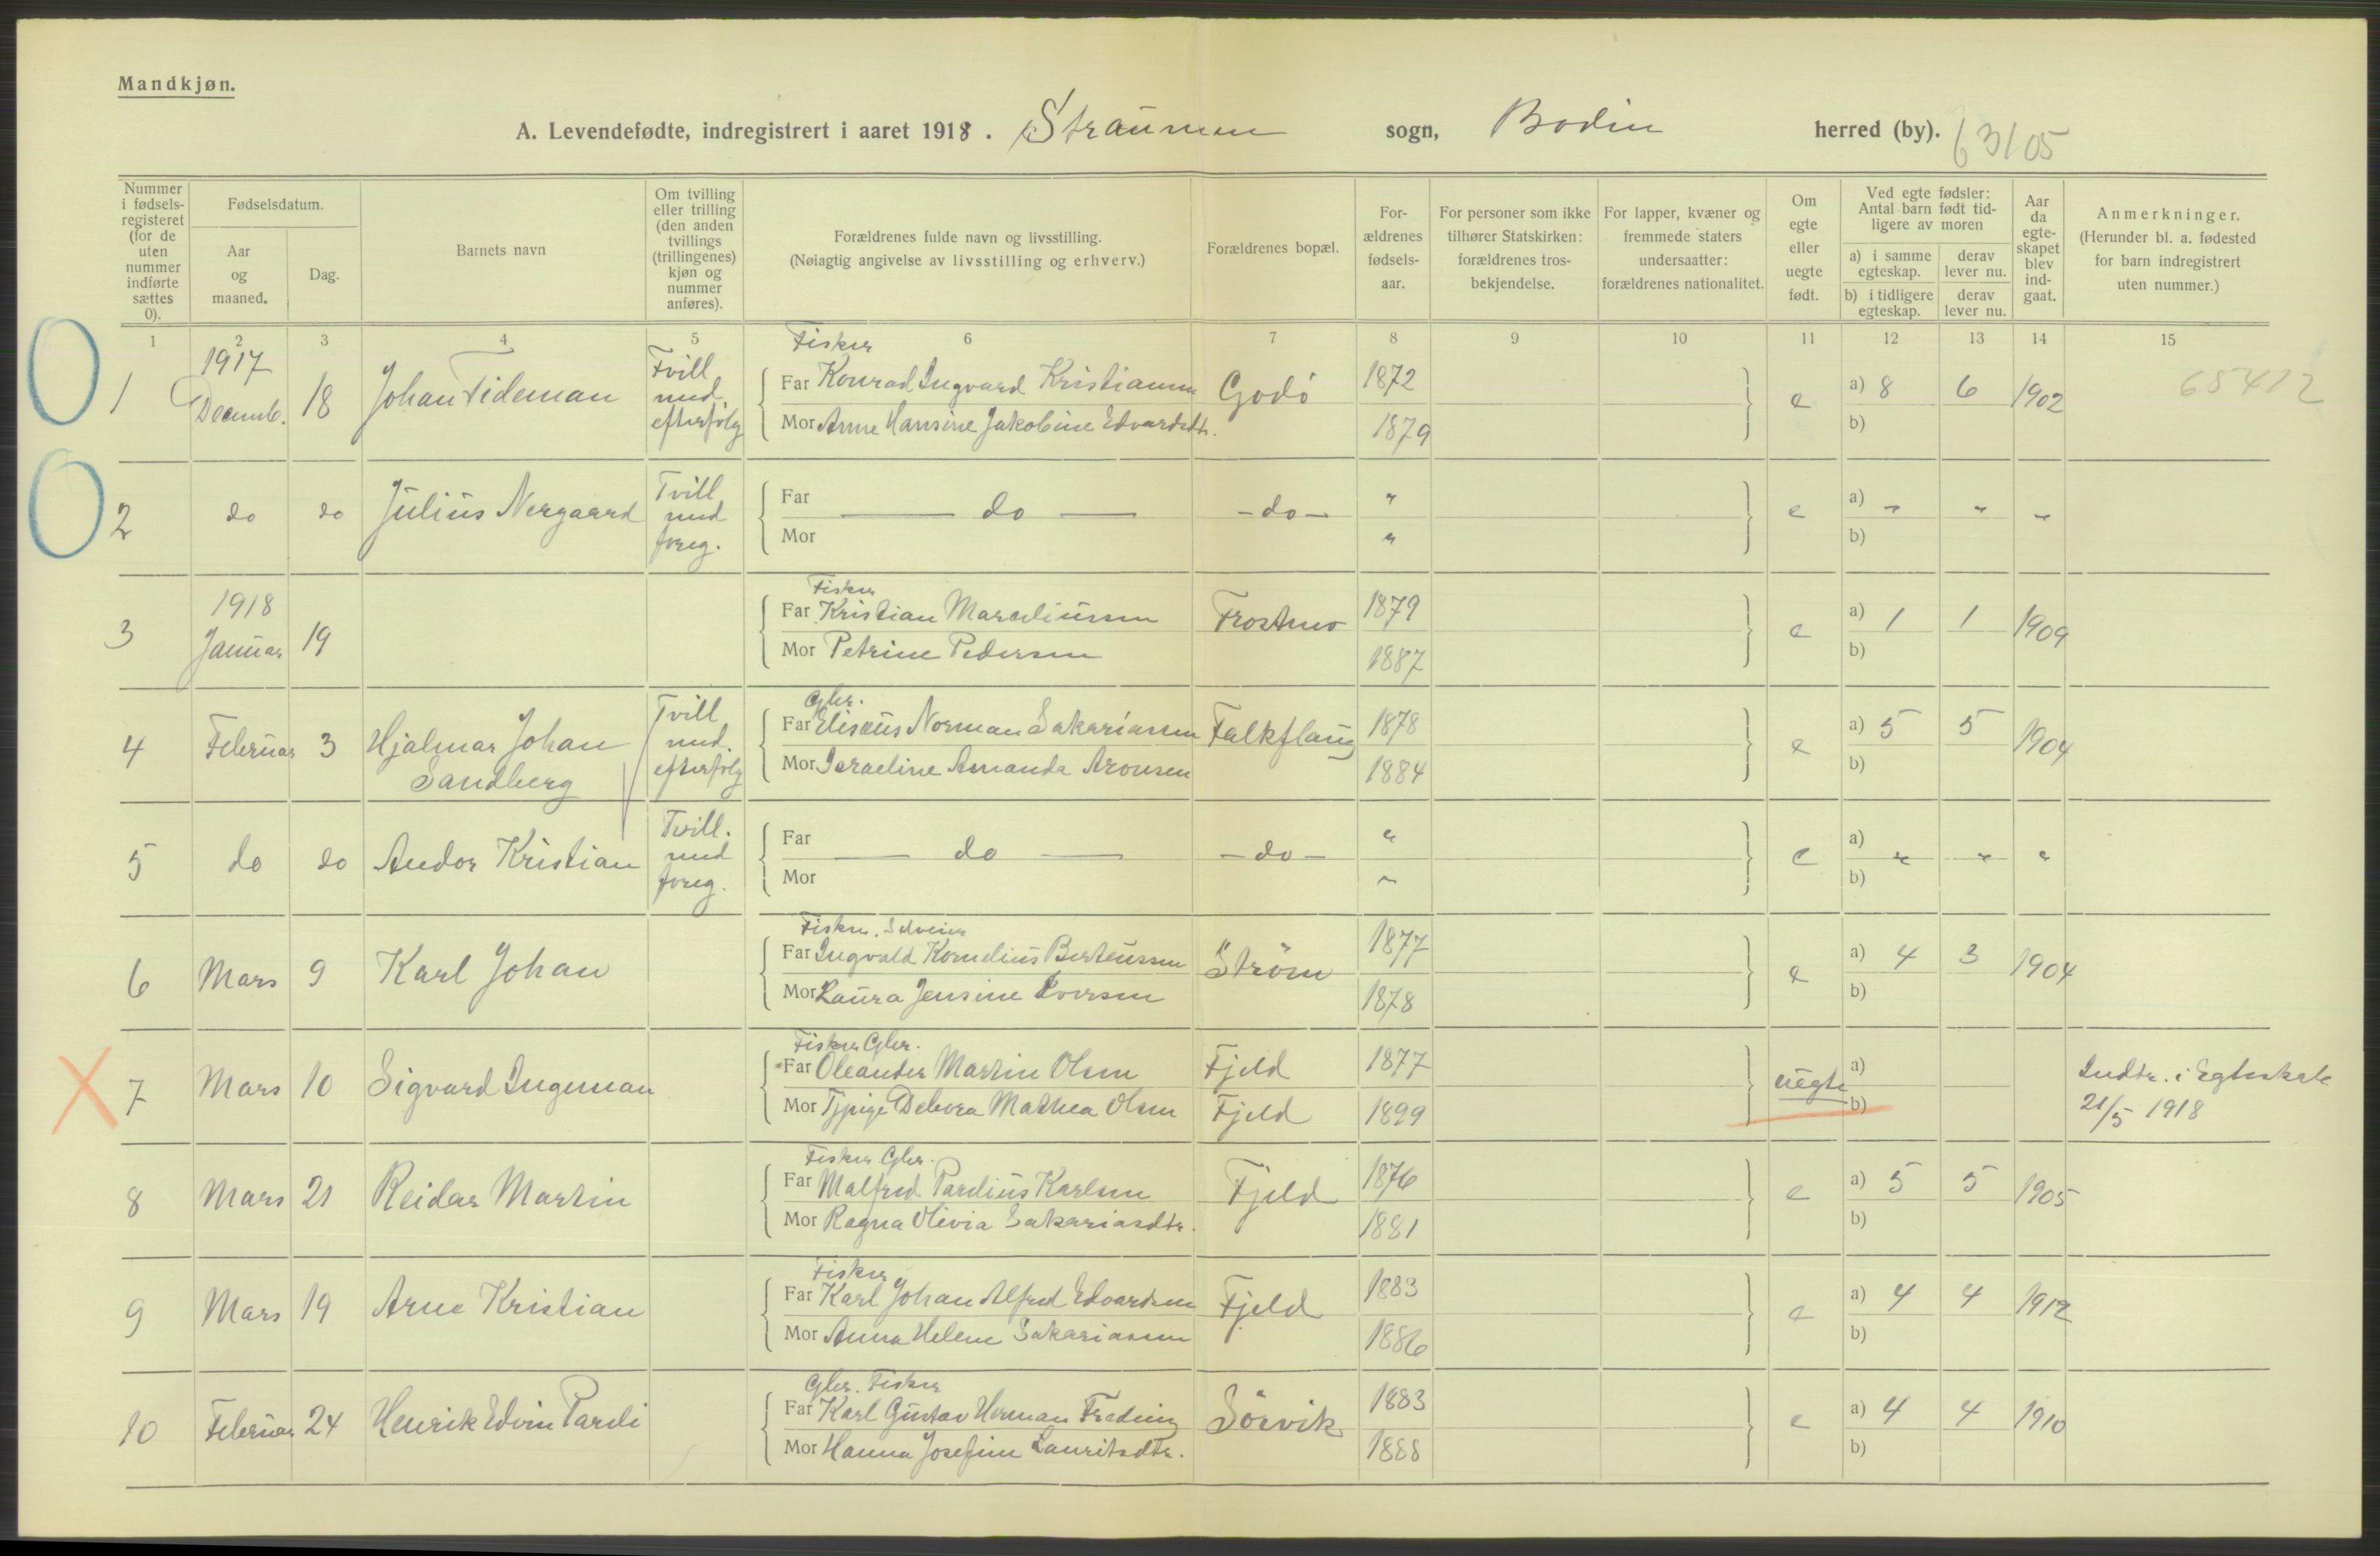 Mandkjøn.
A. Levendefødte, indregistrert i aaret 1918. Straumen sogn, Bodin herred (by). 63105
Nummer i fødsels-registeret (for de uten nummer indførte sættes 0).
Fødselsdatum.
Aar og maaned.
Dag.
Barnets navn
Om tvilling eller trilling (den anden tvillings (trillingenes) kjøn og nummer anføres).
Forældrenes fulde navn og livsstilling.
(Nøiagtig angivelse av livsstilling og erhverv.)
Forældrenes bopæl.
For-ældrenes fødsels-aar.
For personer som ikke tilhører Statskirken: forældrenes tros-bekjendelse.
For lapper, kvæner og fremmede staters undersaatter: forældrenes nationalitet.
Om egte eller uegte født.
Ved egte fødsler: Antal barn født tid-ligere av moren
a) i samme egteskap. derav lever nu.
b) i tidligere egteskap. derav lever nu.
Aar da egte-skapet blev ind-gaat.
Anmerkninger.
(Herunder bl. a. fødested for barn indregistrert uten nummer.)
1 2 3 4 5 6 7 8 9 10 11 12 13 14 15
1917 Tvill. Fisker
1 Decemb. 18 Johan Tideman med Far Konrad Ingvard Kristiansen Godö 1872 e a) 8 6 1902 65412
efterfölg Mor Anne Hansine Jakobine Edvardsdtr. 1879 b)
Tvill Far " a)
2 do do Julius Nergaard med do - do - e " " "
foreg. Mor " b)
1918 Fisker
3 Januar 19 Far Kristian Marceliussen Frostmo 1879 e a) 1 1 1909
Mor Petrine Pedersen 1887 b)
Tvill Gbr.
4 Februar 3 Hjalmar Johan med. Far Elisæus Norman Sakariassen Falkflaug 1878 e a) 5 5 1904
Sandberg efterfölg Mor Israeline Amanda Aronsen 1884 b)
Tvill. Far " a)
5 do do Andor Kristian med do - do - e " " "
foreg. Mor " b)
Fisker. Selveier
6 Mars 9 Karl Johan Far Ingvald Kornelius Berteussen Ström 1877 e a) 4 3 1904
Mor Laura Jensine Iversen 1878 b)
Fisker Gbr.
7 Mars 10 Sigvard Ingeman Far Oleander Martin Olsen Fjeld 1877 uegte a) Indtr. i Egteskab
Mor Tjpige Debora Mathea Olsen Fjeld 1899 b) 21/5 1918
Fisker Gbr.
8 Mars 21 Reidar Martin Far Malfred Pareliüs Karlsen Fjeld 1876 e a) 5 5 1905
Mor Ragna Olivia Sakariasdtr. 1881 b)
Fisker
9 Mars 19 Arne Kristian Far Karl Johan Alfred Edvardsen Fjeld 1883 e a) 4 4 1912
Mor Anna Helene Sakariassen 1886 b)
Gbr. Fisker
10 Februar 24 Henrik Edvin Pareli Far Karl Gustav Herman Freding Sörvik 1883 e a) 4 4 1910
Mor Hanna Josefine Lauritsdtr. 1888 b)